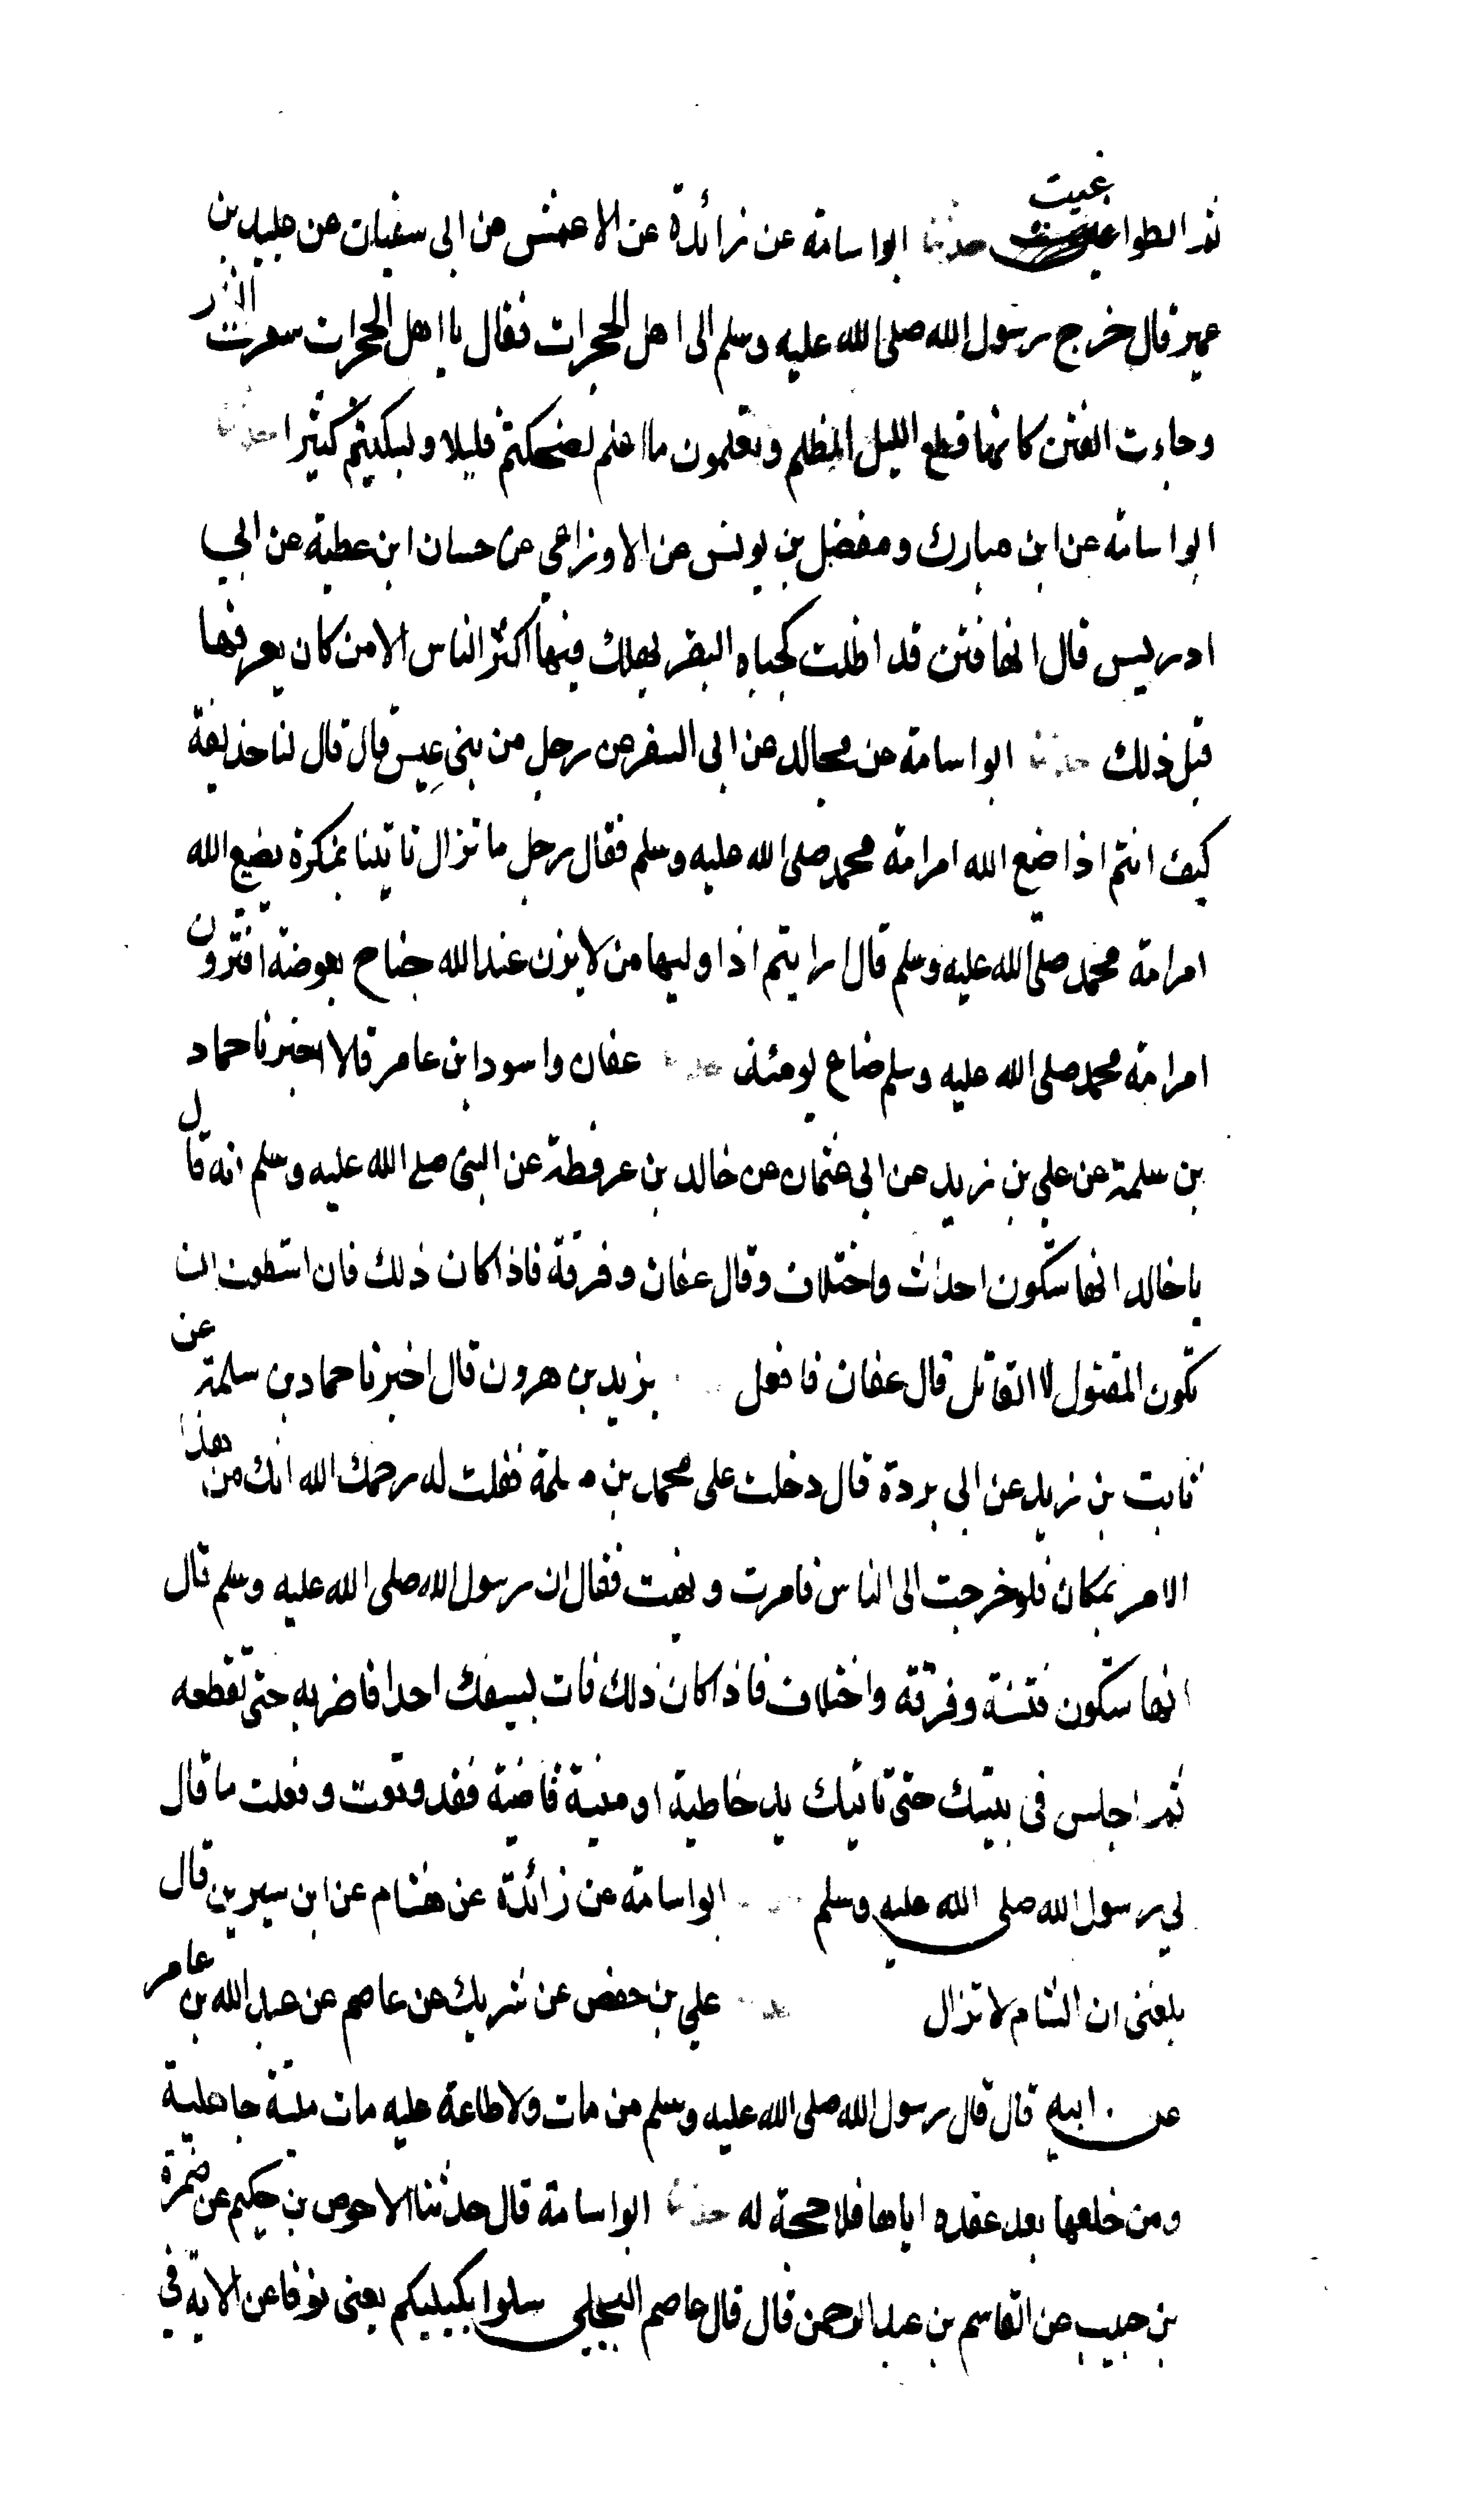 غيت
ثم الطواغيت حدثنا ابو اسامة عن زائدة عن الاعمش عن ابى سفيان عن عبيد بن
عمير قال خرج رسول الله صلى الله عليه وسلم الى اهل الحجرات فقال يا اهل الحجرات سعرت النار
وجاءت الفتن كانها قطع الليل المظلم وتعلمون ما اعلم لضحكتم قليلا ولبكيتم كثيرا حدثنا
ابو اسامة عن ابن مبارك ومفضل بن يونس عن الاوزاعي عن حسان ابن عطية عن ابي
ادريس قال انها فتن قد اظلت كجباه البقر يهلك فيها اكثر الناس الا من كان يعرفها
قبل ذلك حدثنا ابو اسامة عن مجالد عن ابى السفر عن رجل من بني عبس قال قال لنا حذيفة
كيف انتم اذا ضيع الله امر امة محمد صلى الله عليه وسلم فقال رجل ما تزال تاتينا بمنكرة يضيع الله
امر امة محمد صلى الله عليه وسلم قال ارايتم اذا وليها من لا يزن عند الله جناح بعوضة افترون
امر امة محمد صلى الله عليه وسلم ضاع يومئذ حدثنا عفان واسود ابن عامر قالا اخبرنا حماد
بن سلمة عن علي بن زيد عن ابى عثمان عن خالد بن عرفطة عن النبى صلى الله عليه وسلم انه قال
يا خالد انها ستكون احداث واختلاف وقال عفان وفرقة فاذا كان ذلك فان استطعت ان
تكون المقتول لا القاتل قال عفان فافعل يزيد بن هرون قال اخبرنا حماد بن سلمة عن
ثابت بن زيد عن ابى بردة قال دخلت على محمد بن مسلمة فقلت له رحمك الله انك من هذا
الامر بمكان فلو خرجت الى الناس فامرت ونهيت فقال ان رسول الله صلى الله عليه وسلم قال
انها ستكون فتنة وفرقة واختلاف فاذا كان ذلك فات بسيفك احدا فاضربه حتى تقطعه
ثم اجلس فى بيتك حتى تاتيك يد خاطية او منية قاضية فقد وقعت وفعلت ما قال
لي رسول الله صلى الله عليه وسلم ابو اسامة عن زائدة عن هشام عن ابن سيرين قال
بلغنى ان الشام لا تزال حدثنا علي بن حفص عن شريك عن عاصم عن عبد الله بن عامر
عن ابيه قال قال رسول الله صلى الله عليه وسلم من مات ولا طاعة عليه مات ميتة جاهلية
ومن خلعها بعد عقده اياها فلا حجة له حدثنا ابو اسامة قال حدثنا الاحوص بن حكيم عن ضمرة
بن حبيب عن القاسم بن عبد الرحمن قال قال عاصم البجلي سلوا بكيليكم يعنى نوفا عن الاية في